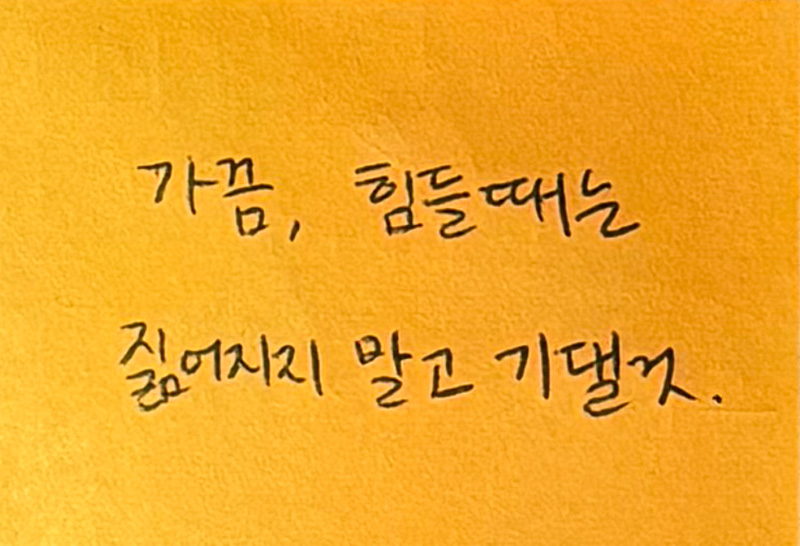 가끔, 힘들때는
짊어지지 말고 기댈것.